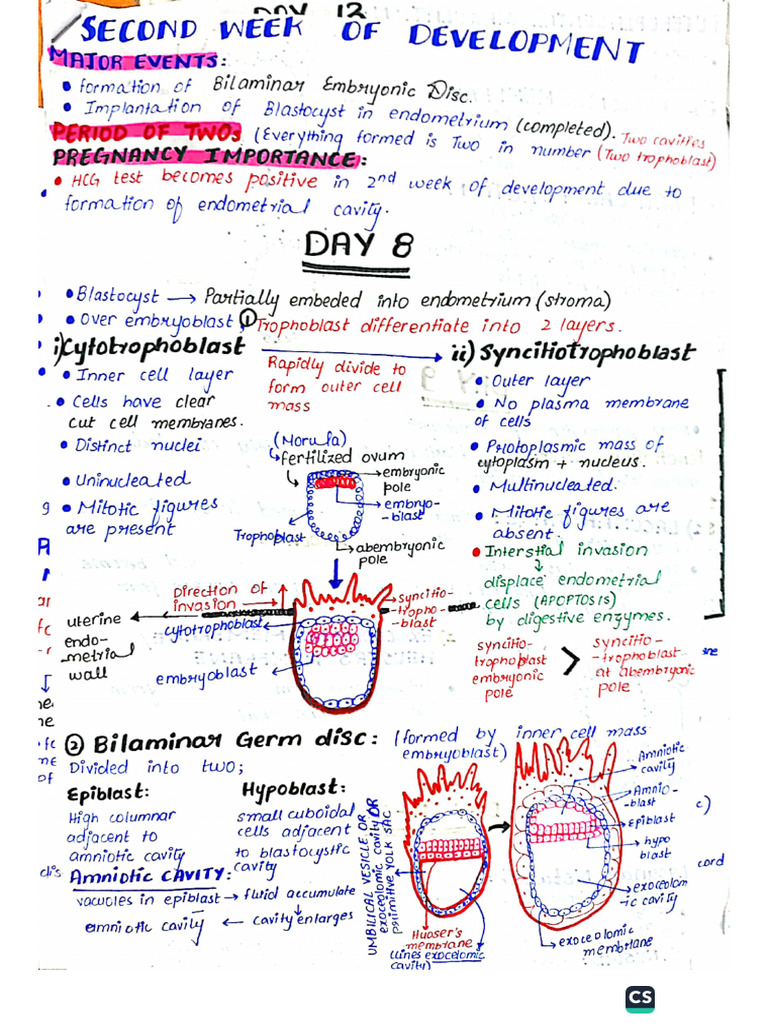 DAY 12
SECOND WEEK OF DEVELOPMENT
MAJOR EVENTS:
• Formation of Bilaminar Embryonic Disc.
• Implantation of Blastocyst in endometrium (completed).
PERIOD OF TWOs (Everything formed is Two in number (Two cavities
(Two trophoblast)
PREGNANCY IMPORTANCE:
• HCG test becomes positive in 2nd week of development due to
formation of endometrial cavity.
DAY 8
• Blastocyst → Partially embeded into endometrium (stroma)
• Over embryoblast, ① Trophoblast differentiate into 2 layers.
i) Cytotrophoblast
• Inner cell layer
• Cells have clear
cut cell membranes.
• Distinct nuclei
• Uninucleated
• Mitotic figures
are present
Rapidly divide to
form outer cell
mass
ii) Syncitiotrophoblast
• Outer layer
• No plasma membrane
of cells
• Protoplasmic mass of
cytoplasm + nucleus.
• Multinucleated.
• Mitotic figures are
absent.
• Interstial invasion
↓
displace endometrial
cells (APOPTOSIS)
by digestive enzymes.
(Morula)
fertilized ovum
embryonic
pole
embryo-
-blast
Trophoblast
abembryonic
pole
Direction of
invasion
uterine
endo-
-metrial
wall
cytotrophoblast
embryoblast
syncitio-
-tropho-
-blast
syncitio-
trophoblast
embryonic
pole
>
syncitio-
-trophoblast
at abembryonic
pole
② Bilaminar Germ disc: (formed by inner cell mass
embryoblast)
Divided into two;
Epiblast:
High columnar
adjacent to
amniotic cavity
Hypoblast:
small cuboidal
cells adjacent
to blastocystic
cavity
AMNIOTIC CAVITY:
vacules in epiblast → fluid accumulate
amniotic cavity ← cavity enlarges
UMBILICAL VESICLE OR
exocoelomic cavity OR
primitive YOLK SAC
Huaser's
membrane
(lines exocelomic
cavity)
Amniotic
cavity
Amnio-
-blast
Epiblast
hypo
blast
exocoelom
-ic cavity
exoceolomic
membrane
c)
cord
CS